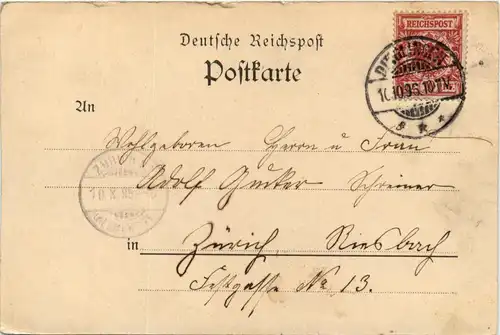 REICHSPOST
Deutsche Reichspost
Postkarte
10.10.95.10-11V.
An
Wohlgeboren Herrn u Frau
ZÜRICH
Adolf Schreiner
10.X.95
in Zürich, Riesbach
Festgasse No. 13.